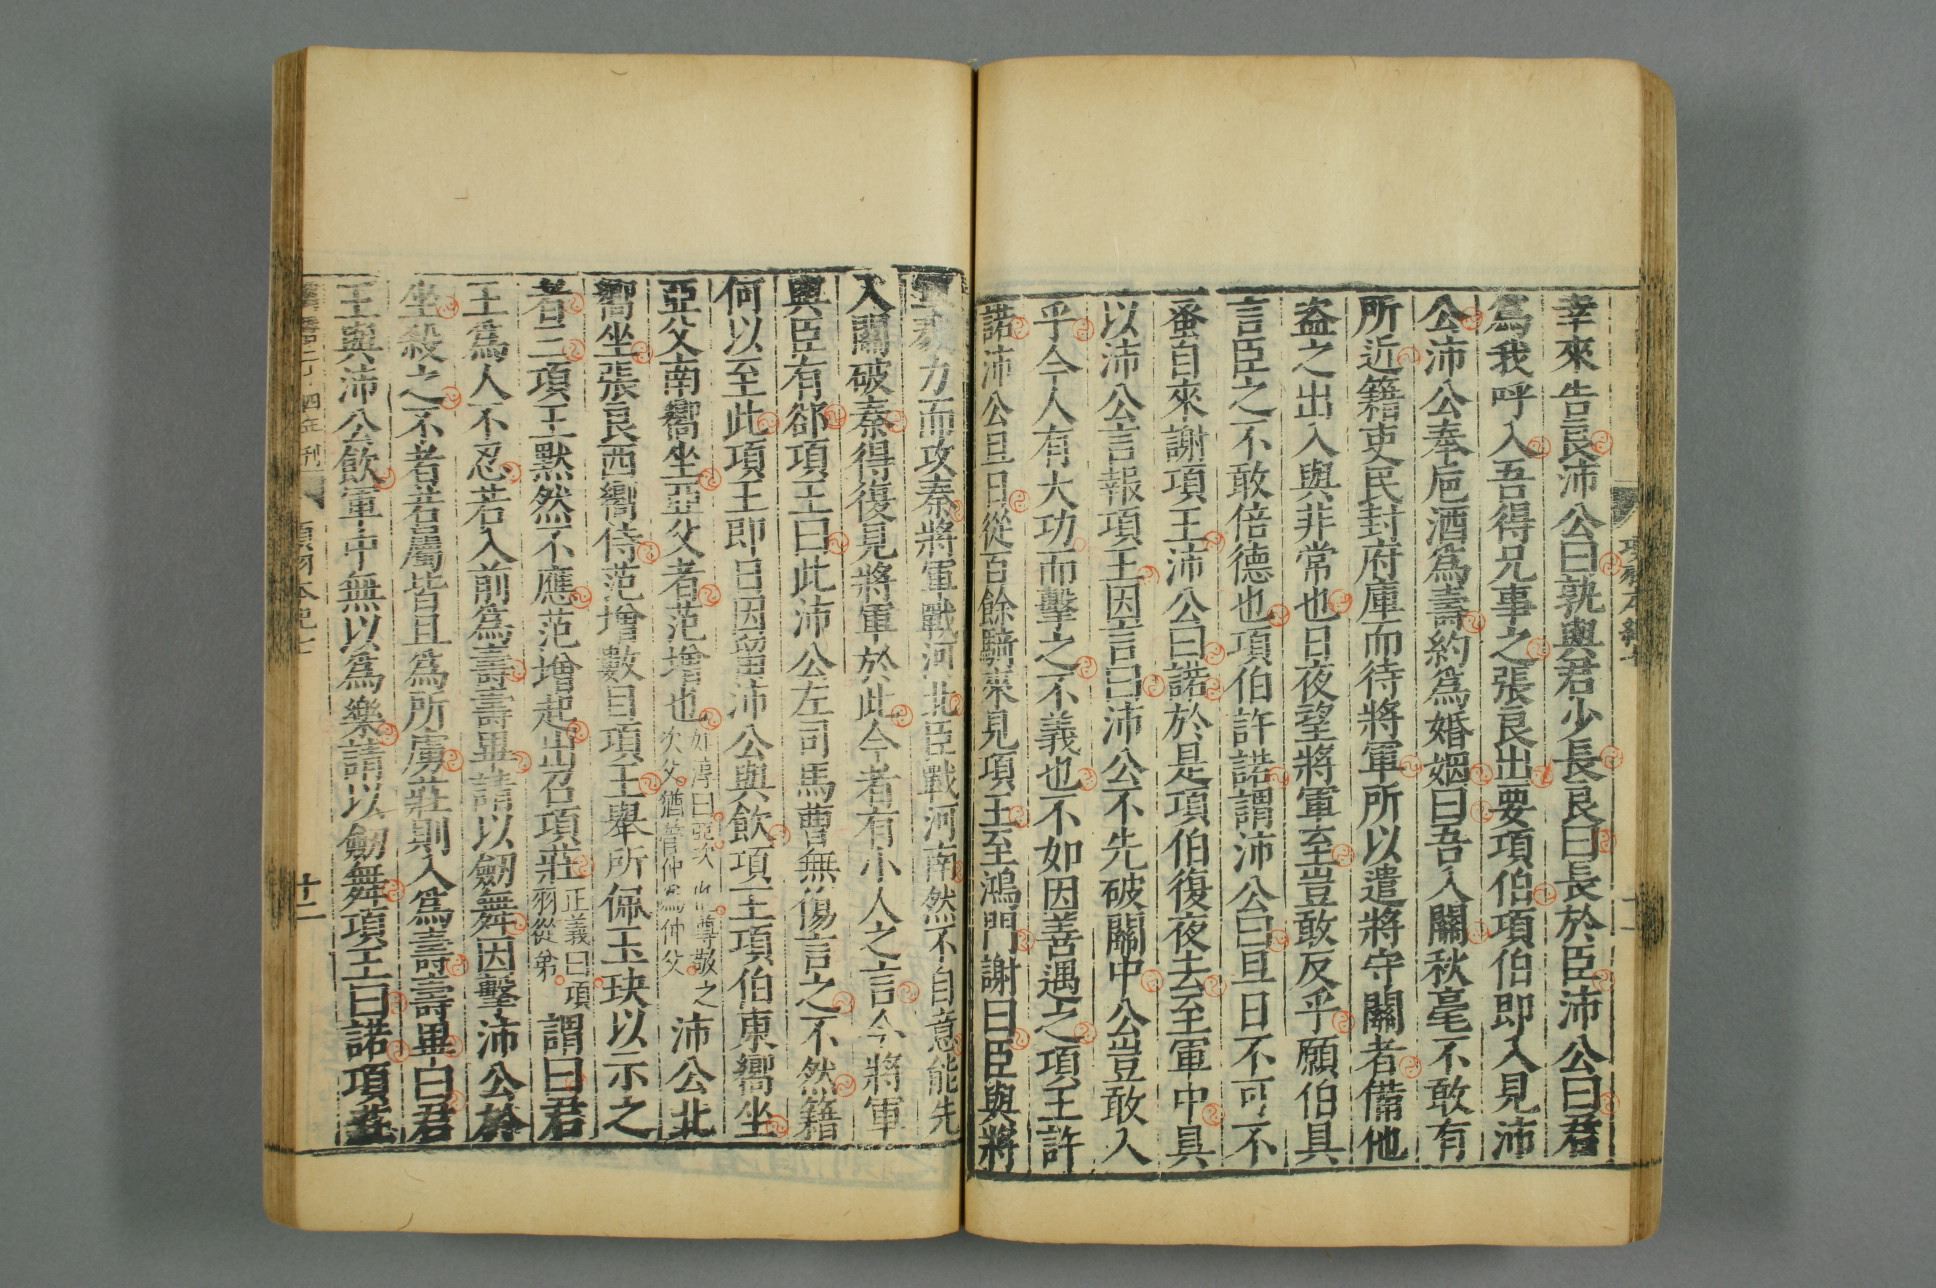 幸來告良沛公曰孰與君少長良曰長於臣沛公曰君
爲我呼入吾得兄事之張良出要項伯項伯即入見沛
公沛公奉巵酒爲壽約爲婚姻曰吾入關秋毫不敢有
所近籍吏民封府庫而待將軍所以遣將守關者備他
盗之出入與非常也日夜望將軍至豈敢反乎願伯具
言臣之不敢倍德也項伯許諾謂沛公曰旦日不可不
蚤自來謝項王沛公曰諾於是項伯復夜去至軍中具
以沛公言報項王因言曰沛公不先破關中公豈敢入
乎今人有大功而擊之不義也不如因善遇之項王許
諾沛公旦日從百餘騎來見項王至鴻門謝曰臣與將
軍戮力而攻秦將軍戰河北臣戰河南然不自意能先
入關破秦得復見將軍於此今者有小人之言令將軍
與臣有郤項王曰此沛公左司馬曹無傷言之不然籍
何以至此項王即日因留沛公與飲項王項伯東嚮坐
亞父南嚮坐亞父者范增也
如淳曰亞次也尊敬之
次父猶管仲爲仲父
沛公北
嚮坐張良西嚮侍范增數目項王舉所佩玉玦以示之
者三項王默然不應范增起出召項莊
正義曰項
羽從弟
謂曰君
王爲人不忍若入前爲壽壽畢請以劒舞因擊沛公於
坐殺之不者若屬皆且爲所虜莊則入爲壽壽畢曰君
王與沛公飲軍中無以爲樂請以劒舞項王曰諾項莊
項羽本紀七
廿二